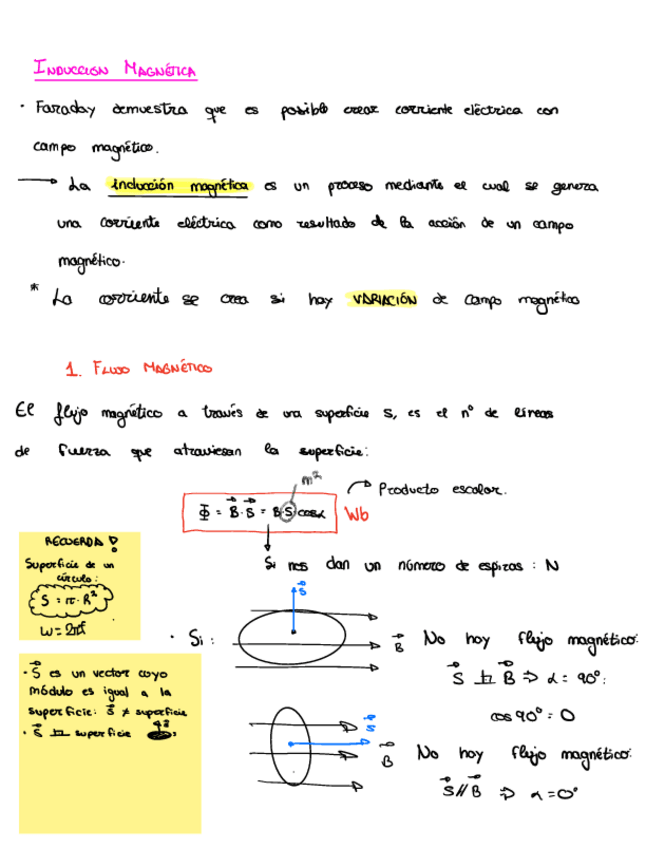 INDUCCION MAGNÉTICA
· Faraday demuestra que es posible crear corriente eléctrica con
campo magnético.
→ La inducción magnética es un proceso mediante el cual se genera
una corriente eléctrica como resultado de la acción de un campo
magnético.
* La corriente se crea si hay VARIACIÓN de campo magnético
1. FLUJO MAGNÉTICO
El flujo magnético a través de una superficie S, es el nº de líneas
de fuerza que atraviesan la superficie:
m²
Producto escalar.
Φ = B⃗ · S⃗ = B·S cosα Wb
Si nos dan un número de espiras : N
RECUERDA !
Superficie de un
círculo:
S = π·R²
ω = 2πf
· S⃗ es un vector cuyo
módulo es igual a la
superficie: S⃗ ≠ superficie
· S⃗ ⊥ superficie
· Si:
S⃗
B⃗
No hay flujo magnético:
S⃗ ⊥ B⃗ ⇒ α = 90º:
cos 90º = 0
S⃗
B⃗
No hay flujo magnético:
S⃗ // B⃗ ⇒ α = 0º